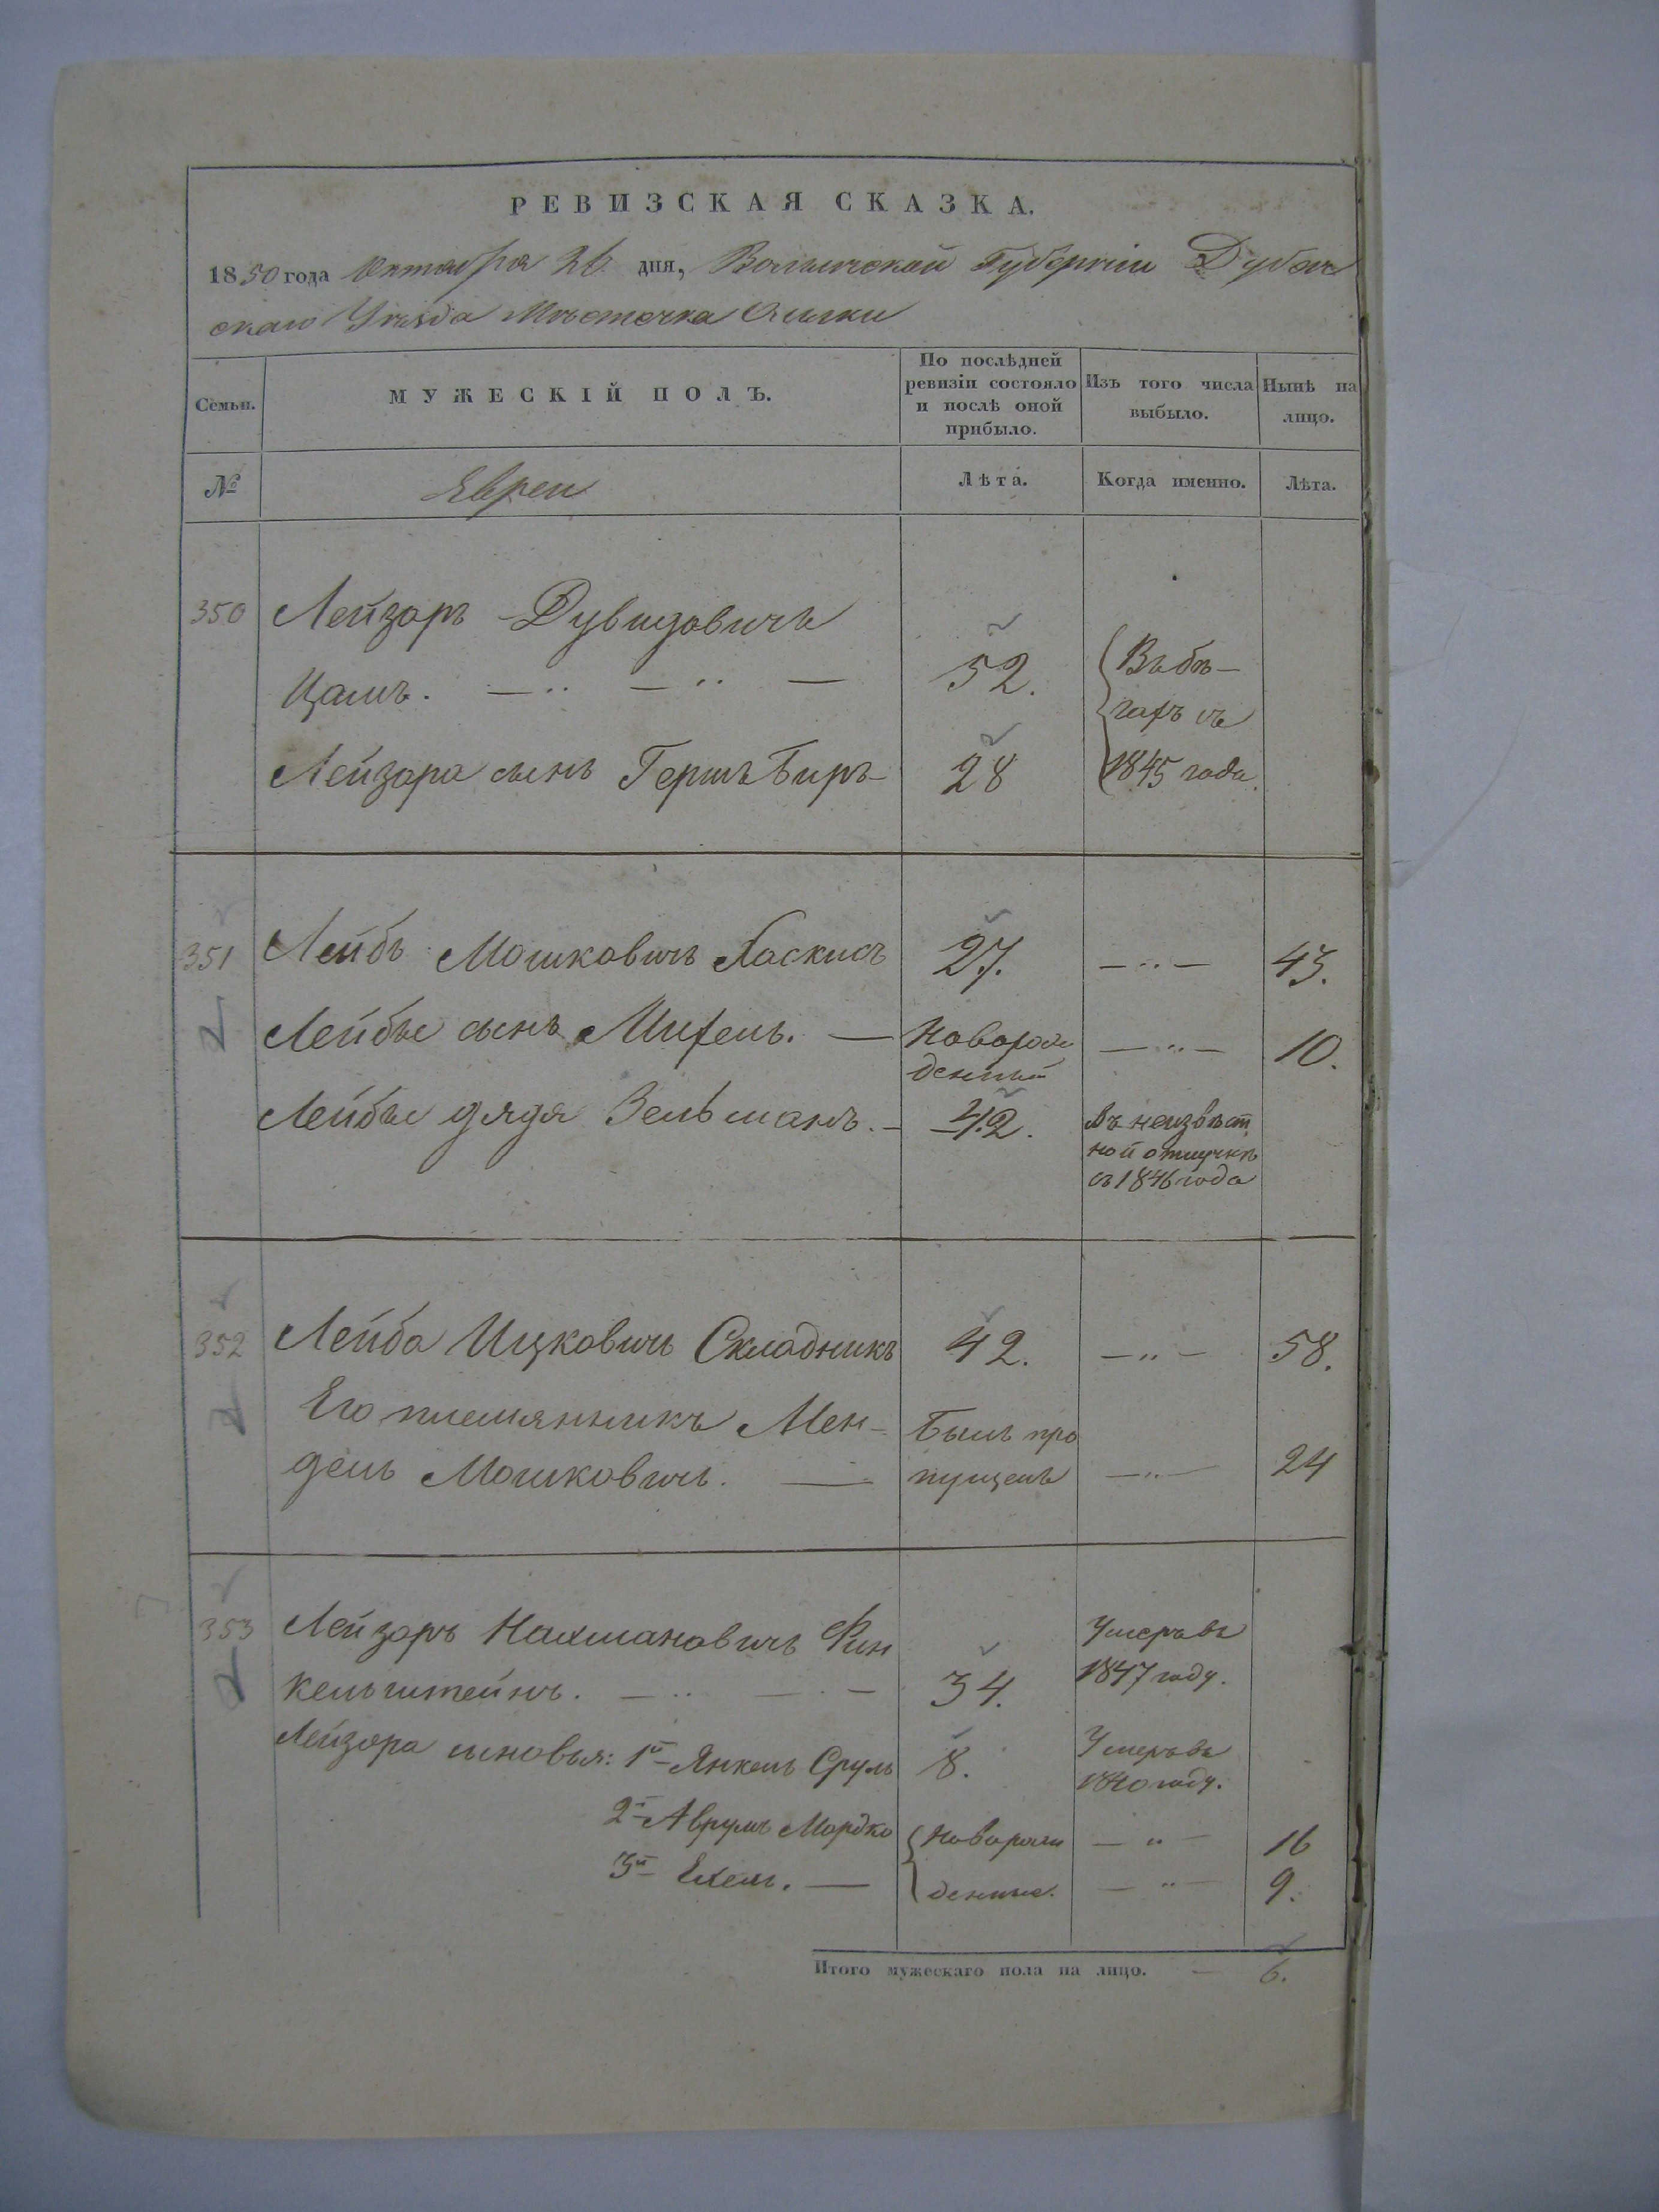 РЕВИЗСКАЯ СКАЗКА.
1850 года Октября 26 дня, Волынской Губерніи Дубен
скаго Уѣзда Мѣстечка Олыки
Семьи.
МУЖЕСКІЙ ПОЛЪ.
По послѣдней
ревизіи состояло
и послѣ оной
прибыло.
Изъ того числа
выбыло.
Нынѣ на
лицо.
№
Евреи
Лѣта.
Когда именно.
Лѣта.
350 Лейзоръ Дувидовичъ
Цамъ. 52.
Лейзора сынъ Гершъ Беръ 28
Въ бѣ-
гахъ съ
1845 года.
351 Лейбъ Мошковичъ Хаскисъ 27. 43.
Лейбы сынъ Михель. Новорож
денный 10.
Лейбы дядя Зельманъ. 42. Въ неизвѣст
ной отлучкѣ
съ 1846 года
352 Лейба Ицковичъ Складникъ 42. 58.
Его племянникъ Мен-
дель Мошковичъ.
Былъ про
пущенъ 24
353 Лейзоръ Нахмановичъ Фин
кельштейнъ. 34.
Умеръ въ
1847 году.
Лейзора сыновья: 1й Янкель Сруль 8.
Умеръ въ
1840 году.
2й Аврумъ Мордко Новорож 16
3й Ехель. денные. 9.
Итого мужескаго пола на лицо. 6.